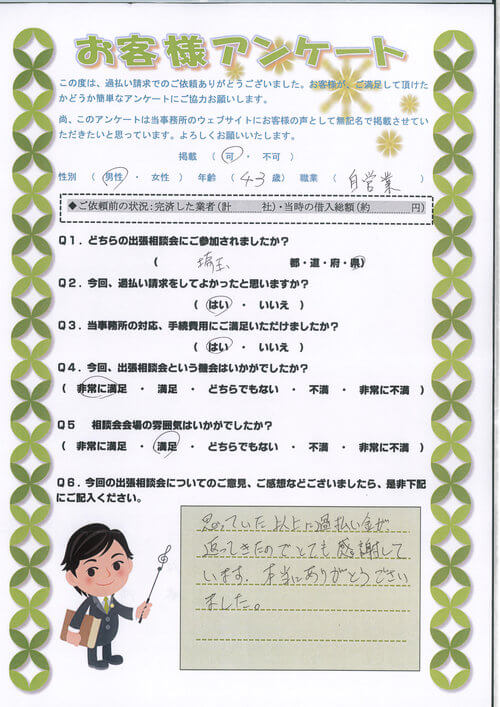 お客様アンケート
この度は、過払い請求でのご依頼ありがとうございました。お客様が、ご満足して頂けた
かどうか簡単なアンケートにご協力お願いします。
尚、このアンケートは当事務所のウェブサイトにお客様の声として無記名で掲載させてい
ただきたいと思っています。よろしくお願いいたします。
掲載 ( 可 ・ 不可 )
性別 ( 男性 ・ 女性 ) 年齢 ( 43 歳) 職業 ( 自営業 )
◆ご依頼前の状況:完済した業者(計 社)・当時の借入総額(約 円)
Q1.どちらの出張相談会にご参加されましたか?
( 埼玉 都・道・府・県)
Q2.今回、過払い請求をしてよかったと思いますか?
( はい ・ いいえ )
Q3.当事務所の対応、手続費用にご満足いただけましたか?
( はい ・ いいえ )
Q4.今回、出張相談会という機会はいかがでしたか?
( 非常に満足 ・ 満足 ・ どちらでもない ・ 不満 ・ 非常に不満 )
Q5 相談会会場の雰囲気はいかがでしたか?
( 非常に満足 ・ 満足 ・ どちらでもない ・ 不満 ・ 非常に不満 )
Q6.今回の出張相談会についてのご意見、ご感想などございましたら、是非下記
にご記入ください。
思っていた以上に過払い金が
返ってきたのでとても感謝して
います。本当にありがとうござい
ました。